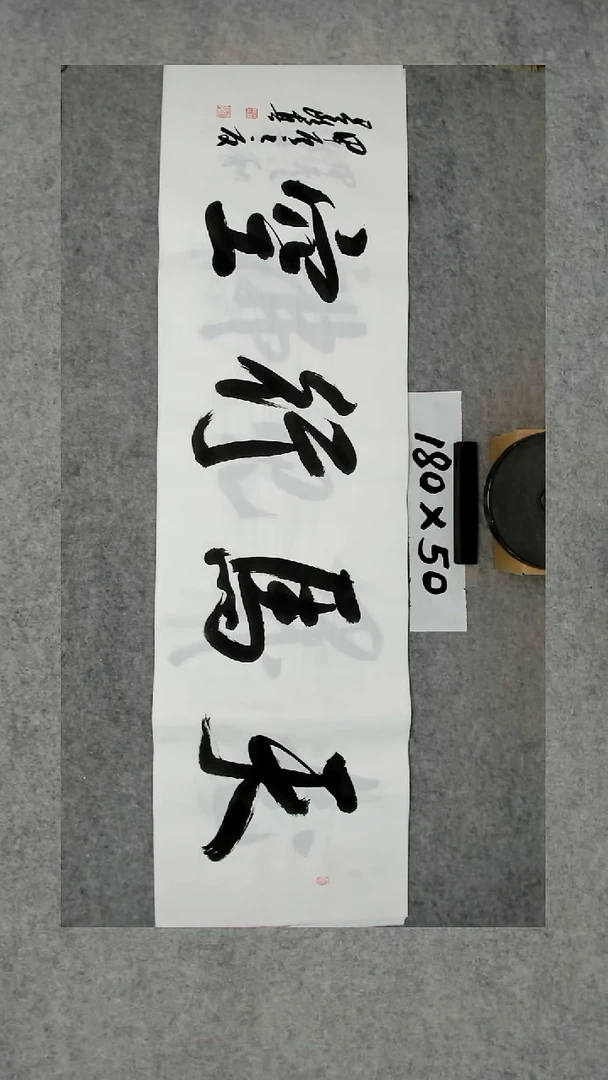 天馬行空
180×50